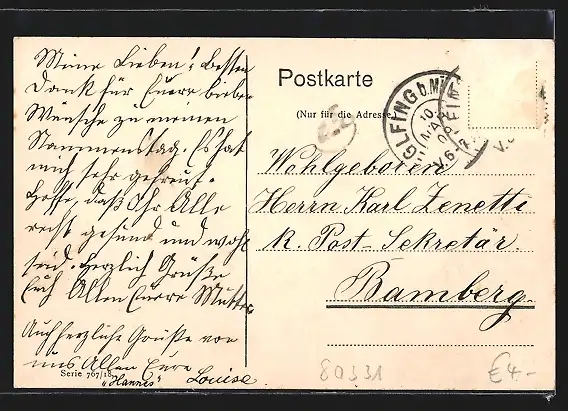 Meine Lieben! Besten
Dank für Euere lieben
Wünsche zu meinem
Namenstag. Es hat
mich sehr gefreut.
Hoffe, daß Ihr Alle
recht gesund und wohl
seid. Herzlich Grüße
Euch Allen Euere Mutter
Auch herzliche Grüße von
uns Allen Eure
Serie 767/18
"Hannes" Louise
Postkarte
(Nur für die Adresse)
GLFING b. MÜ
10. MAR
V. 6-7
Wohlgeboren
Herrn Karl Zenetti
K. Post-Sekretär.
Bamberg.
80331
€4.-